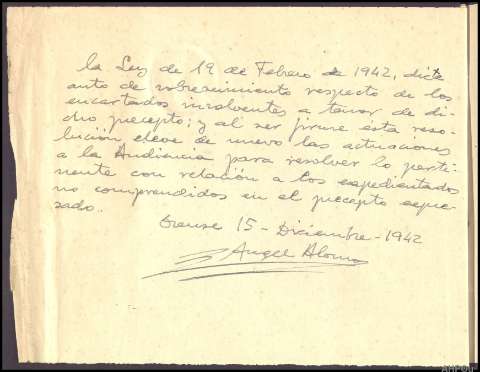 la Ley de 19 de Febrero de 1942, dicte
auto de sobreseimiento respecto de los
encartados insolventes a tenor de di-
cho precepto; y al ser firme esta reso-
lución eleve de nuevo las actuaciones
a la Audiencia para resolver lo perti-
nente con relación a los expedientados
no comprendidos en el precepto expre-
sado..
Orense 15 - Diciembre - 1942
Angel Alonso